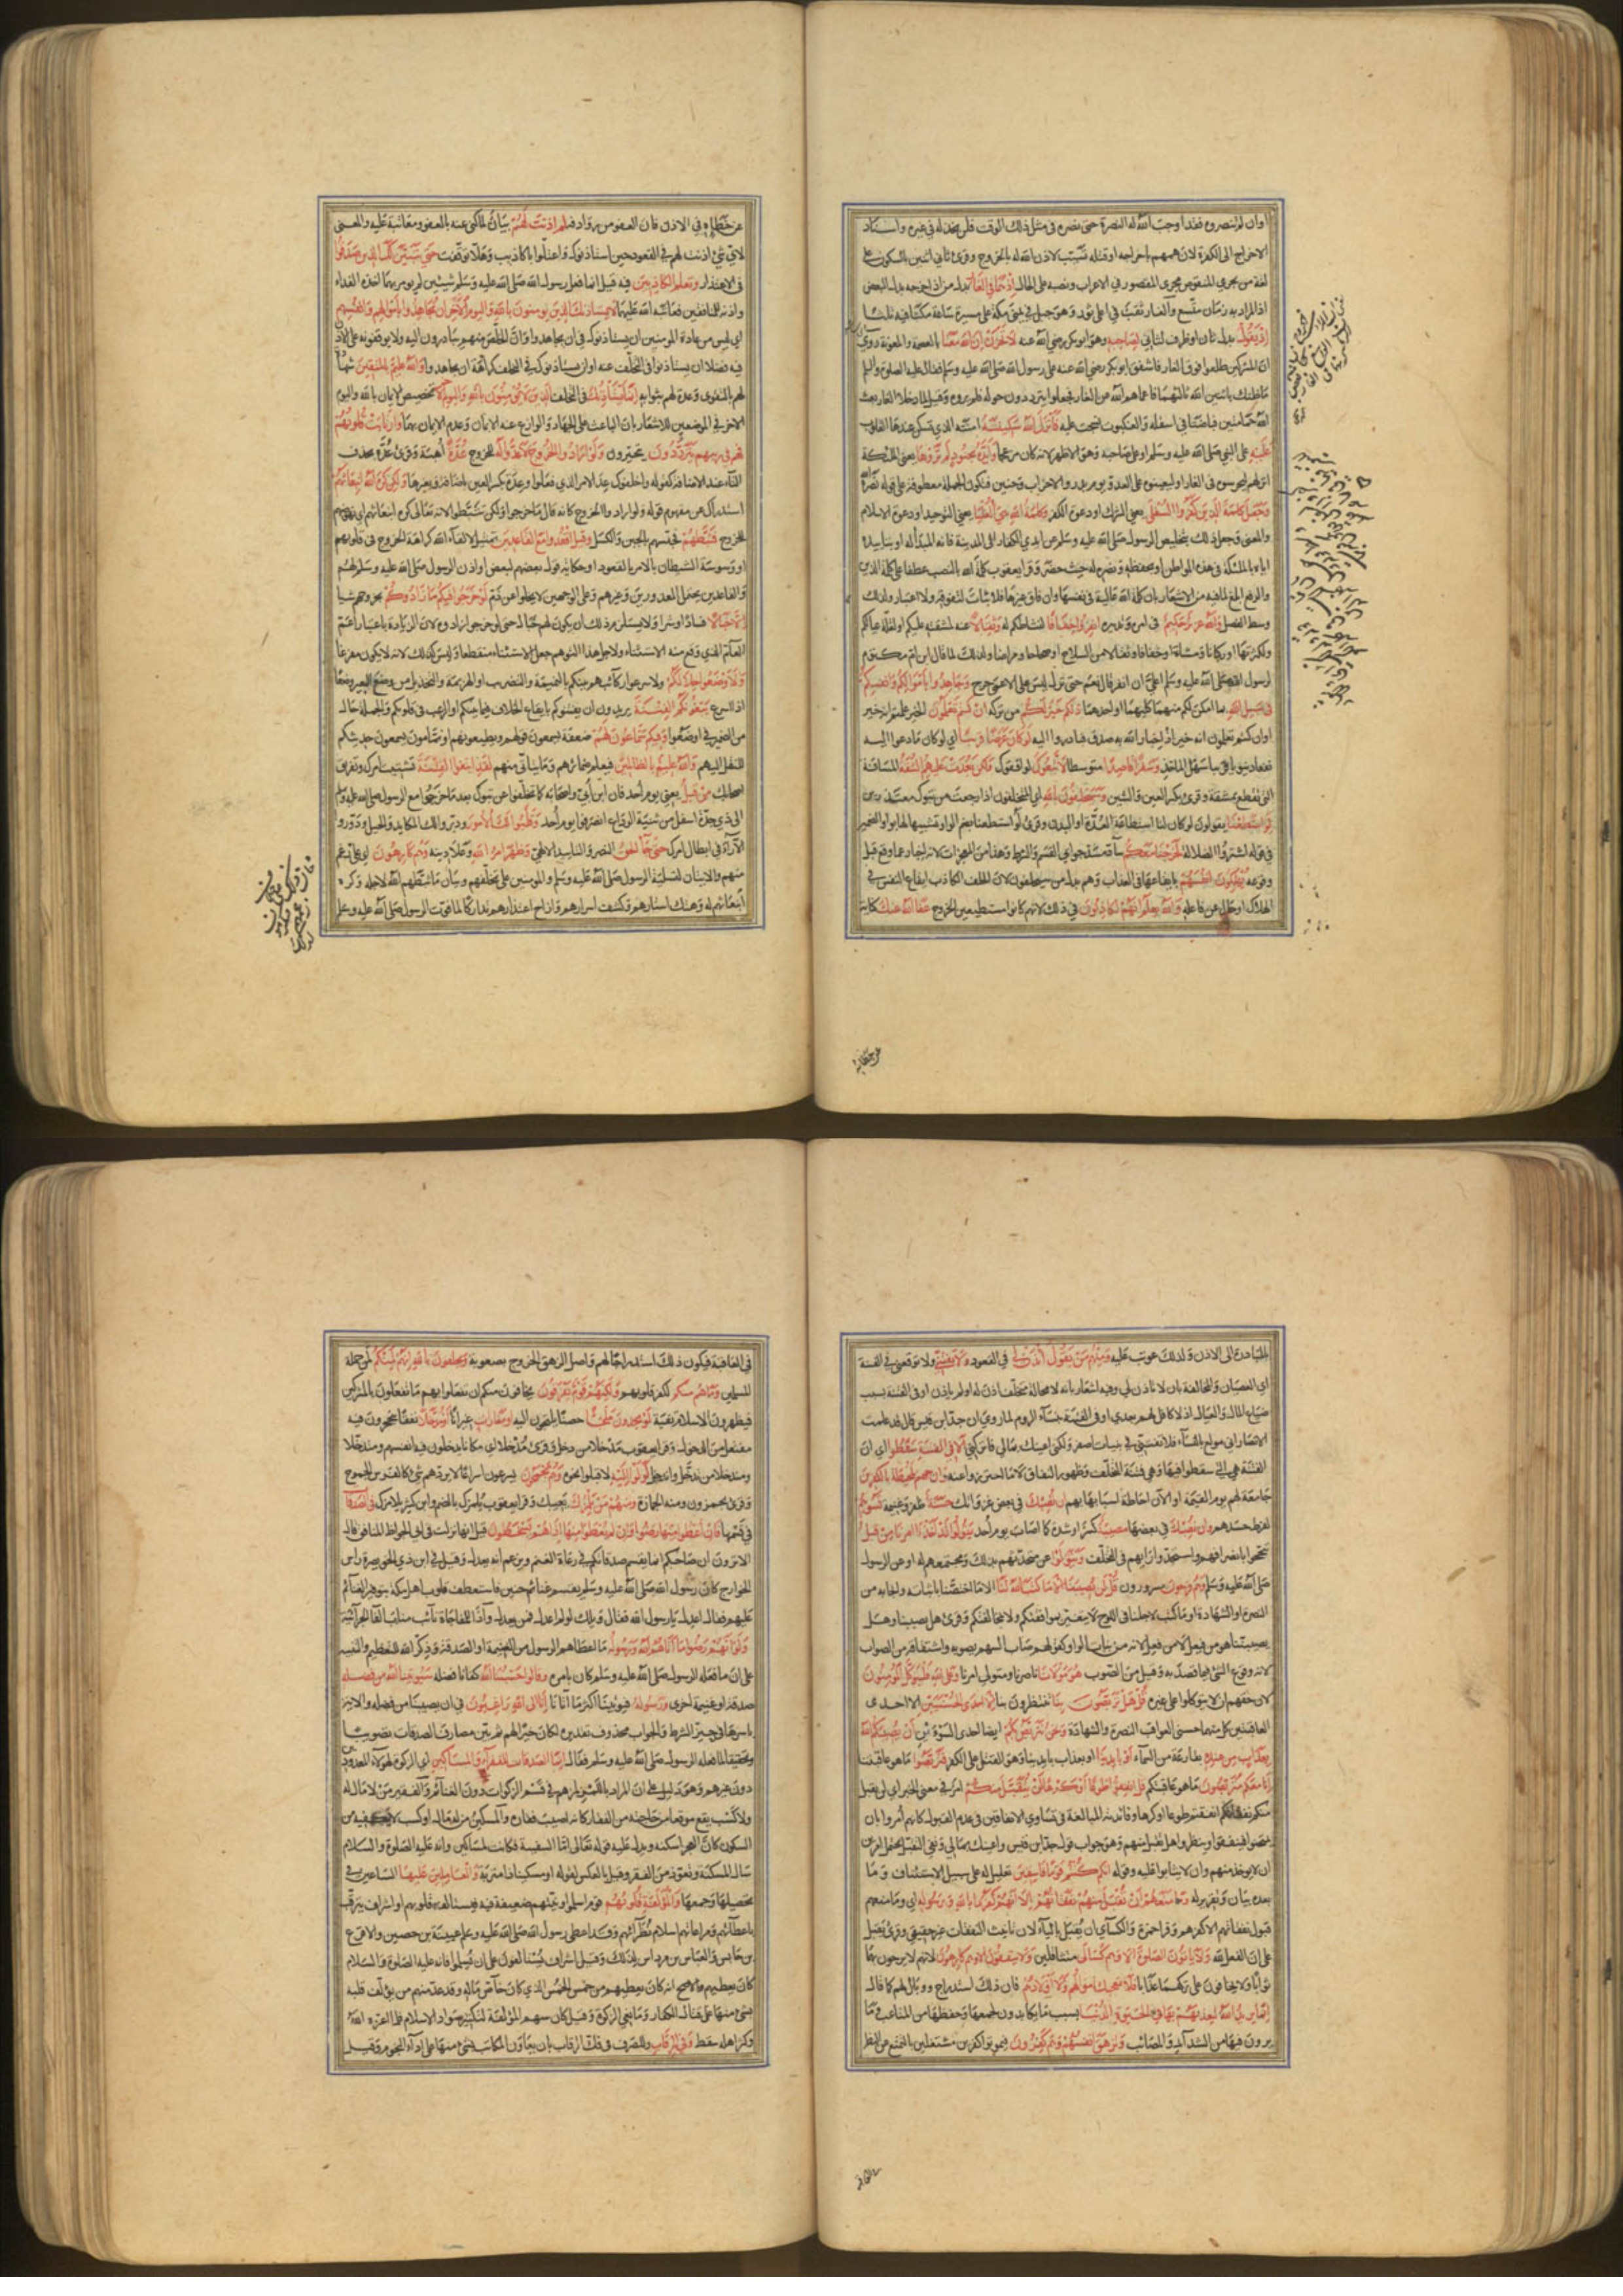 اوان لم تنصروه فقد اوجب الله له النصرة حتى نصره في مثل ذلك الوقت فلن يخذله في غيره واسناد
الاخراج الى الكفرة لان همهم باخراجه او قتله تسبب لاذن الله له بالخروج وقرئ ثاني اثنين بالسكون على
لغة من يجري المنقوص مجرى المقصور في الاعراب ونصبه على الحال اذ هما في الغار بدل من اذ اخرجه بدل البعض
اذ المراد به زمان متسع والغار ثقب في اعلى ثور وهو جبل في يمنى مكة على مسيرة ساعة مكثا فيه ثلثا
اذ يقول بدل ثان او ظرف لثاني لصاحبه وهو ابو بكر رضي الله عنه لا تحزن ان الله معنا بالعصمة والمعونة روي
ان المشركين طلعوا فوق الغار فاشفق ابو بكر رضي الله عنه على رسول الله صلى الله عليه وسلم فقال عليه الصلوة والسلم
ما ظنك باثنين الله ثالثهما فاعماهم الله عن الغار فجعلوا يترددون حوله فلم يروه وقيل لما دخلا الغار بعث
الله حمامتين فباضتا في اسفله والعنكبوت نسجت عليه فانزل الله سكينته امنته التي تسكن عندها القلوب
عليه على النبي صلى الله عليه وسلم او على صاحبه وهو الاظهر لانه كان منزعجا وايده بجنود لم تروها يعني الملئكة
انزلهم ليحرسوه في الغار او ليعينوه على العدو يوم بدر والاحزاب وحنين فتكون الجملة معطوفة على قوله نصره الله
وجعل كلمة الذين كفروا السفلى يعني الشرك او دعوة الكفر وكلمة الله هي العليا يعني التوحيد او دعوة الاسلام
والمعنى وجعل ذلك بتخليص الرسول صلى الله عليه وسلم عن ايدي الكفار الى المدينة فانه المبدأ له او بتاييده
اياه بالملئكة في هذه المواطن او بحفظه ونصره له حيث حضر وقرا يعقوب كلمة الله بالنصب عطفا على كلمة الذين
والرفع ابلغ لما فيه من الاشعار بان كلمة الله عالية في نفسها وان فاق غيرها فلا ثبات لتفوقه ولا اعتبار ولذلك
وسط الفصل والله عزيز حكيم في امره وتدبيره انفروا خفافا لنشاطكم له وثقالا عنه لمشقته عليكم او لقلة عيالكم
ولكثرتها او ركبانا ومشاة او خفافا وثقالا من السلاح او صحاحا ومراضا ولذلك لما قال ابن ام مكتوم
لرسول الله صلى الله عليه وسلم اعلي ان انفر قال نعم حتى نزل ليس على الاعمى حرج وجاهدوا باموالكم وانفسكم
في سبيل الله بما امكن لكم منهما كليهما او احدهما ذلكم خير لكم من تركه ان كنتم تعلمون الخير علمتم انه خير
او ان كنتم تعلمون انه خير اذ اخبار الله به صدق فبادروا اليه لو كان عرضا قريبا اي لو كان ما دعوا اليه
نفعا دنيويا قريبا سهل الماخذ وسفرا قاصدا متوسطا لاتبعوك لوافقوك ولكن بعدت عليهم الشقة المسافة
التي تقطع بمشقة وقرئ بكسر العين والشين وسيحلفون بالله اي المتخلفون اذا رجعت من تبوك معتذرين
لو استطعنا يقولون لو كان لنا استطاعة العدة او البدن وقرئ لو استطعنا بضم الواو تشبيها لها بواو الضمير
في قوله اشتروا الضلالة لخرجنا معكم ساد مسد جوابي القسم والشرط وهذا من المعجزات لانه اخبار عما وقع قبل
وقوعه يهلكون انفسهم بايقاعها في العذاب وهو بدل من سيحلفون لان الحلف الكاذب ايقاع للنفس في
الهلاك او حال من فاعله والله يعلم انهم لكاذبون في ذلك لانهم كانوا مستطيعين الخروج عفا الله عنك كناية
عن خطائه
عن خطائه في الاذن فان العفو من روادفه لم اذنت لهم بيان لما كنى عنه بالعفو ومعاتبة عليه والمعنى
لاي شئ اذنت لهم في القعود حين استاذنوك واعتلوا باكاذيب وهلا توقفت حتى يتبين لك الذين صدقوا
في الاعتذار وتعلم الكاذبين فيه قيل انما فعل رسول الله صلى الله عليه وسلم شيئين لم يومر بهما اخذه الفداء
واذنه للمنافقين فعاتبه الله عليهما لا يستاذنك الذين يومنون بالله واليوم الاخر ان يجاهدوا باموالهم وانفسهم
اي ليس من عادة المومنين ان يستاذنوك في ان يجاهدوا وان الخلص منهم يبادرون اليه ولا يوقفونه على الاذن
فيه فضلا ان يستاذنوا في التخلف عنه او ان يستاذنوك في التخلف كراهة ان يجاهدوا والله عليم بالمتقين شهادة
لهم بالتقوى وعدة لهم بثوابه انما يستاذنك في التخلف الذين لا يؤمنون بالله واليوم الاخر تخصيص الايمان بالله واليوم
الاخر في الموضعين للاشعار بان الباعث على الجهاد والوازع عنه الايمان وعدم الايمان بهما وارتابت قلوبهم
فهم في ريبهم يترددون يتحيرون ولو ارادوا الخروج لاعدوا له للخروج عدة اهبة وقرئ عده بحذف
التاء عند الاضافة كقوله واخلفوك عد الامر الذي وعدوا وعده بكسر العين باضافة وبغيرها ولكن كره الله انبعاثهم
استدراك عن مفهوم قوله ولو ارادوا الخروج كانه قال ما خرجوا ولكن تثبطوا لانه تعالى كره انبعاثهم اي نهوضهم
للخروج فثبطهم فحبسهم بالجبن والكسل وقيل اقعدوا مع القاعدين تمثيل لالقاء الله كراهة الخروج في قلوبهم
او وسوسة الشيطان بالامر بالقعود او حكاية قول بعضهم لبعض او اذن الرسول صلى الله عليه وسلم لهم
والقاعدين يحتمل المعذورين وغيرهم وعلى الوجهين لا يخلوا عن ذم لو خرجوا فيكم ما زادوكم بخروجهم شيا
الا خبالا فسادا وشرا ولا يستلزم ذلك ان يكون لهم خبال حتى لو خرجوا زادوه لان الزيادة باعتبار اعم
العام الذي وقع منه الاستثناء ولاجل هذا التوهم جعل الاستثناء منقطعا وليس كذلك لانه لا يكون مفرغا
ولاوضعوا خلالكم ولاسرعوا ركائبهم بينكم بالنميمة والتضريب او الهزيمة والتخذيل من وضع البعير وضعا
اذا اسرع يبغونكم الفتنة يريدون ان يفتنوكم بايقاع الخلاف فيما بينكم او الرعب في قلوبكم والجملة حال
من الضمير في اوضعوا وفيكم سماعون لهم ضعفة يسمعون قولهم ويطيعونهم او نمامون يسمعون حديثكم
للنقل اليهم والله عليم بالظالمين فيعلم ضمائرهم وما يتاتى منهم لقد ابتغوا الفتنة تشتيت امرك وتفريق
اصحابك من قبل يعني يوم احد فان ابن ابي واصحابه كما تخلفوا عن تبوك بعد ما خرجوا مع الرسول صلى الله عليه وسلم
الى ذي جدة اسفل من ثنية الوداع انصرفوا يوم احد وقلبوا لك الامور ودبروا لك المكايد والحيل ودوروا
الآراء في ابطال امرك حتى جاء الحق النصر والتاييد الالهي وظهر امر الله وعلا دينه وهم كارهون اي على رغم
منهم والايتان لتسلية الرسول صلى الله عليه وسلم والمومنين على تخلفهم وبيان ما ثبطهم الله لاجله وكره
انبعاثهم له وهتك استارهم وكشف اسرارهم وازاح اعتذارهم تداركا لما فوت الرسول صلى الله عليه وعلى
المبادرة الى الاذن ولذلك عوتب عليه ومنهم من يقول ائذن لي في القعود ولا تفتني ولا توقعني في الفتنة
اي العصيان والمخالفة بان لا تاذن لي وفيه اشعار بانه لا محالة متخلف اذن له او لم ياذن او في الفتنة بسبب
ضياع المال والعيال اذ لا كافل لهم بعدي او في الفتنة بنساء الروم لما روي ان جد ابن قيس قال قد علمت
الانصار اني مولع بالنساء فلا تفتني في بنات اصفر ولكني اعينك بمالي فاتركني الا في الفتنة سقطوا اي ان
الفتنة هي التي سقطوا فيها وهي فتنة التخلف وظهور النفاق لا ما احترزوا عنه وان جهنم لمحيطة بالكافرين
جامعة لهم يوم القيمة او الآن احاطة اسبابها بهم ان تصبك في بعض غزواتك حسنة ظفر وغنيمة تسؤهم
لفرط حسدهم وان تصبك في بعضها مصيبة كسر او شدة كما اصاب يوم احد يقولوا قد اخذنا امرنا من قبل
تبجحوا بانصرافهم واستحمدوا رايهم في التخلف ويتولوا عن متحدثهم بذلك ومجتمعهم له او عن الرسول
صلى الله عليه وسلم وهم فرحون مسرورون قل لن يصيبنا الا ما كتب الله لنا الا ما اختصنا باثباته وايجابه من
النصرة او الشهادة او ما كتب لاجلنا في اللوح لا يتغير بموافقتكم ولا بمخالفتكم وقرئ هل يصيبنا وهل
يصيبنا وهو من فيعل لا من فعل لانه من بنات الواو كقولهم صاب السهم يصوب واشتقاقه من الصواب
لانه وقوع الشئ فيما قصد به وقيل من الصوب هو مولانا ناصرنا ومتولي امرنا وعلى الله فليتوكل المومنون
لان حقهم ان لا يتوكلوا على غيره قل هل تربصون بنا تنتظرون بنا الا احدى الحسنيين الا احدى
العاقبتين كل منهما حسنى العواقب النصرة والشهادة ونحن نتربص بكم ايضا احدى السوئين ان يصيبكم الله
بعذاب من عنده بقارعة من السماء او بايدينا او بعذاب بايدينا وهو القتل على الكفر فتربصوا ما هو عاقبتنا
انا معكم متربصون ما هو عاقبتكم قل انفقوا طوعا او كرها لن يتقبل منكم امر في معنى الخبر اي لن يقبل
منكم نفقاتكم انفقتم طوعا او كرها وفائدته المبالغة في تساوي الانفاقين في عدم القبول كانهم امروا بان
يمتحنوا فينفقوا وينظروا هل يقبل منهم وهو جواب قول جد ابن قيس واعينك بمالي ونفي التقبل يحتمل امرين
ان لا يوخذ منهم وان لا يثابوا عليه وقوله انكم كنتم قوما فاسقين تعليل له على سبيل الاستئناف وما
بعده بيان وتقرير له وما منعهم ان تقبل منهم نفقاتهم الا انهم كفروا بالله وبرسوله اي وما منعهم
قبول نفقاتهم الا كفرهم وقرا حمزة والكسائي ان يقبل بالياء لان تانيث النفقات غير حقيقي وقرئ يقبل
على ان الفعل لله ولا ياتون الصلوة الا وهم كسالى متثاقلين ولا ينفقون الا وهم كارهون لانهم لا يرجون بهما
ثوابا ولا يخافون على تركهما عقابا فلا تعجبك اموالهم ولا اولادهم فان ذلك استدراج ووبال لهم كما قال
انما يريد الله ليعذبهم بها في الحيوة الدنيا بسبب ما يكابدون لجمعها وحفظها من المتاعب وما
يرون فيها من الشدائد والمصائب وتزهق انفسهم وهم كافرون فيموتوا كافرين مشتغلين بالتمتع عن النظر
في العاقبة فيكون ذلك استدراجا لهم واصل الزهوق الخروج بصعوبة ويحلفون بالله انهم لمنكم لمن جملة
المسلمين وما هم منكم لكفر قلوبهم ولكنهم قوم يفرقون يخافون منكم ان تفعلوا بهم ما تفعلون بالمشركين
فيظهرون الاسلام تقية لو يجدون ملجئا حصنا يلجئون اليه او مغارات غيرانا او مدخلا نفقا ينجحرون فيه
مفتعل من الدخول وقرا يعقوب مدخلا من دخل وقرئ مدخلا اي مكانا يدخلون فيه انفسهم ومتدخلا
ومندخلا من تدخل واندخل لولوا اليه لاقبلوا نحوه وهم يجمحون يسرعون اسراعا لا يردهم شئ كالفرس الجموح
وقرئ يجمزون ومنه الجمازة ومنهم من يلمزك يعيبك وقرا يعقوب يلمزك بالضم وابن كثير يلامزك في الصدقات
في قسمها فان اعطوا منها رضوا وان لم يعطوا منها اذا هم يسخطون قيل انها نزلت في ابي الجواظ المنافق قال
الا ترون ان صاحبكم انما يقسم صدقاتكم في رعاة الغنم ويزعم انه يعدل وقيل في ابن ذي الخويصرة راس
الخوارج كان رسول الله صلى الله عليه وسلم يقسم غنائم حنين فاستعطف قلوب اهل مكة بتوفير الغنائم
عليهم فقال اعدل يا رسول الله فقال ويلك ان لم اعدل فمن يعدل واذا للمفاجاة نائب مناب الفاء الجزائية
ولو انهم رضوا ما آتاهم الله ورسوله ما اعطاهم الرسول من الغنيمة او الصدقة وذكر الله للتعظيم والتنبيه
على ان ما فعله الرسول صلى الله عليه وسلم كان بامره وقالوا حسبنا الله كفانا فضله سيوتينا الله من فضله
صدقة او غنيمة اخرى ورسوله فيوتينا اكثر مما آتانا انا الى الله راغبون في ان يغنينا من فضله والآية
باسرها في حيز الشرط والجواب محذوف تقديره لكان خيرا لهم ثم بين مصارف الصدقات تصويبا
وتحقيقا لما فعله الرسول صلى الله عليه وسلم فقال انما الصدقات للفقراء والمساكين اي الزكوة لهؤلاء المعدودين
دون غيرهم وهو دليل على ان المراد باللمز لمزهم في قسم الزكوات دون الغنائم والفقير من لا مال له
ولا كسب يقع موقعا من حاجته من الفقار كانه اصيب فقاره والمسكين من له مال او كسب لا يكفيه من
السكون كان العجز اسكنه ويدل عليه قوله تعالى اما السفينة فكانت لمساكين وانه عليه الصلوة والسلام
سال المسكنة وتعوذ من الفقر وقيل بالعكس لقوله او مسكينا ذا متربة والعاملين عليها الساعين في
تحصيلها وجمعها والمؤلفة قلوبهم قوم اسلموا ونيتهم ضعيفة فيه فيستالف قلوبهم او اشراف يترقب
باعطائهم ومراعاتهم اسلام نظرائهم وقد اعطى رسول الله صلى الله عليه وسلم عيينة بن حصين والاقرع
بن حابس والعباس بن مرداس لذلك وقيل اشراف يستالفون على ان يسلموا فانه عليه الصلوة والسلام
كان يعطيهم والاصح انه كان يعطيهم من خمس الخمس الذي كان خاص ماله وقد عد منهم من يولف قلبه
بشئ منها على قتال الكفار ومانعي الزكوة وقيل كان سهم المؤلفة لتكثير سواد الاسلام فلما اعزه الله
وكثر اهله سقط وفي الرقاب وللصرف في فك الرقاب بان يعاون المكاتب بشئ منها على اداء النجوم وقيل